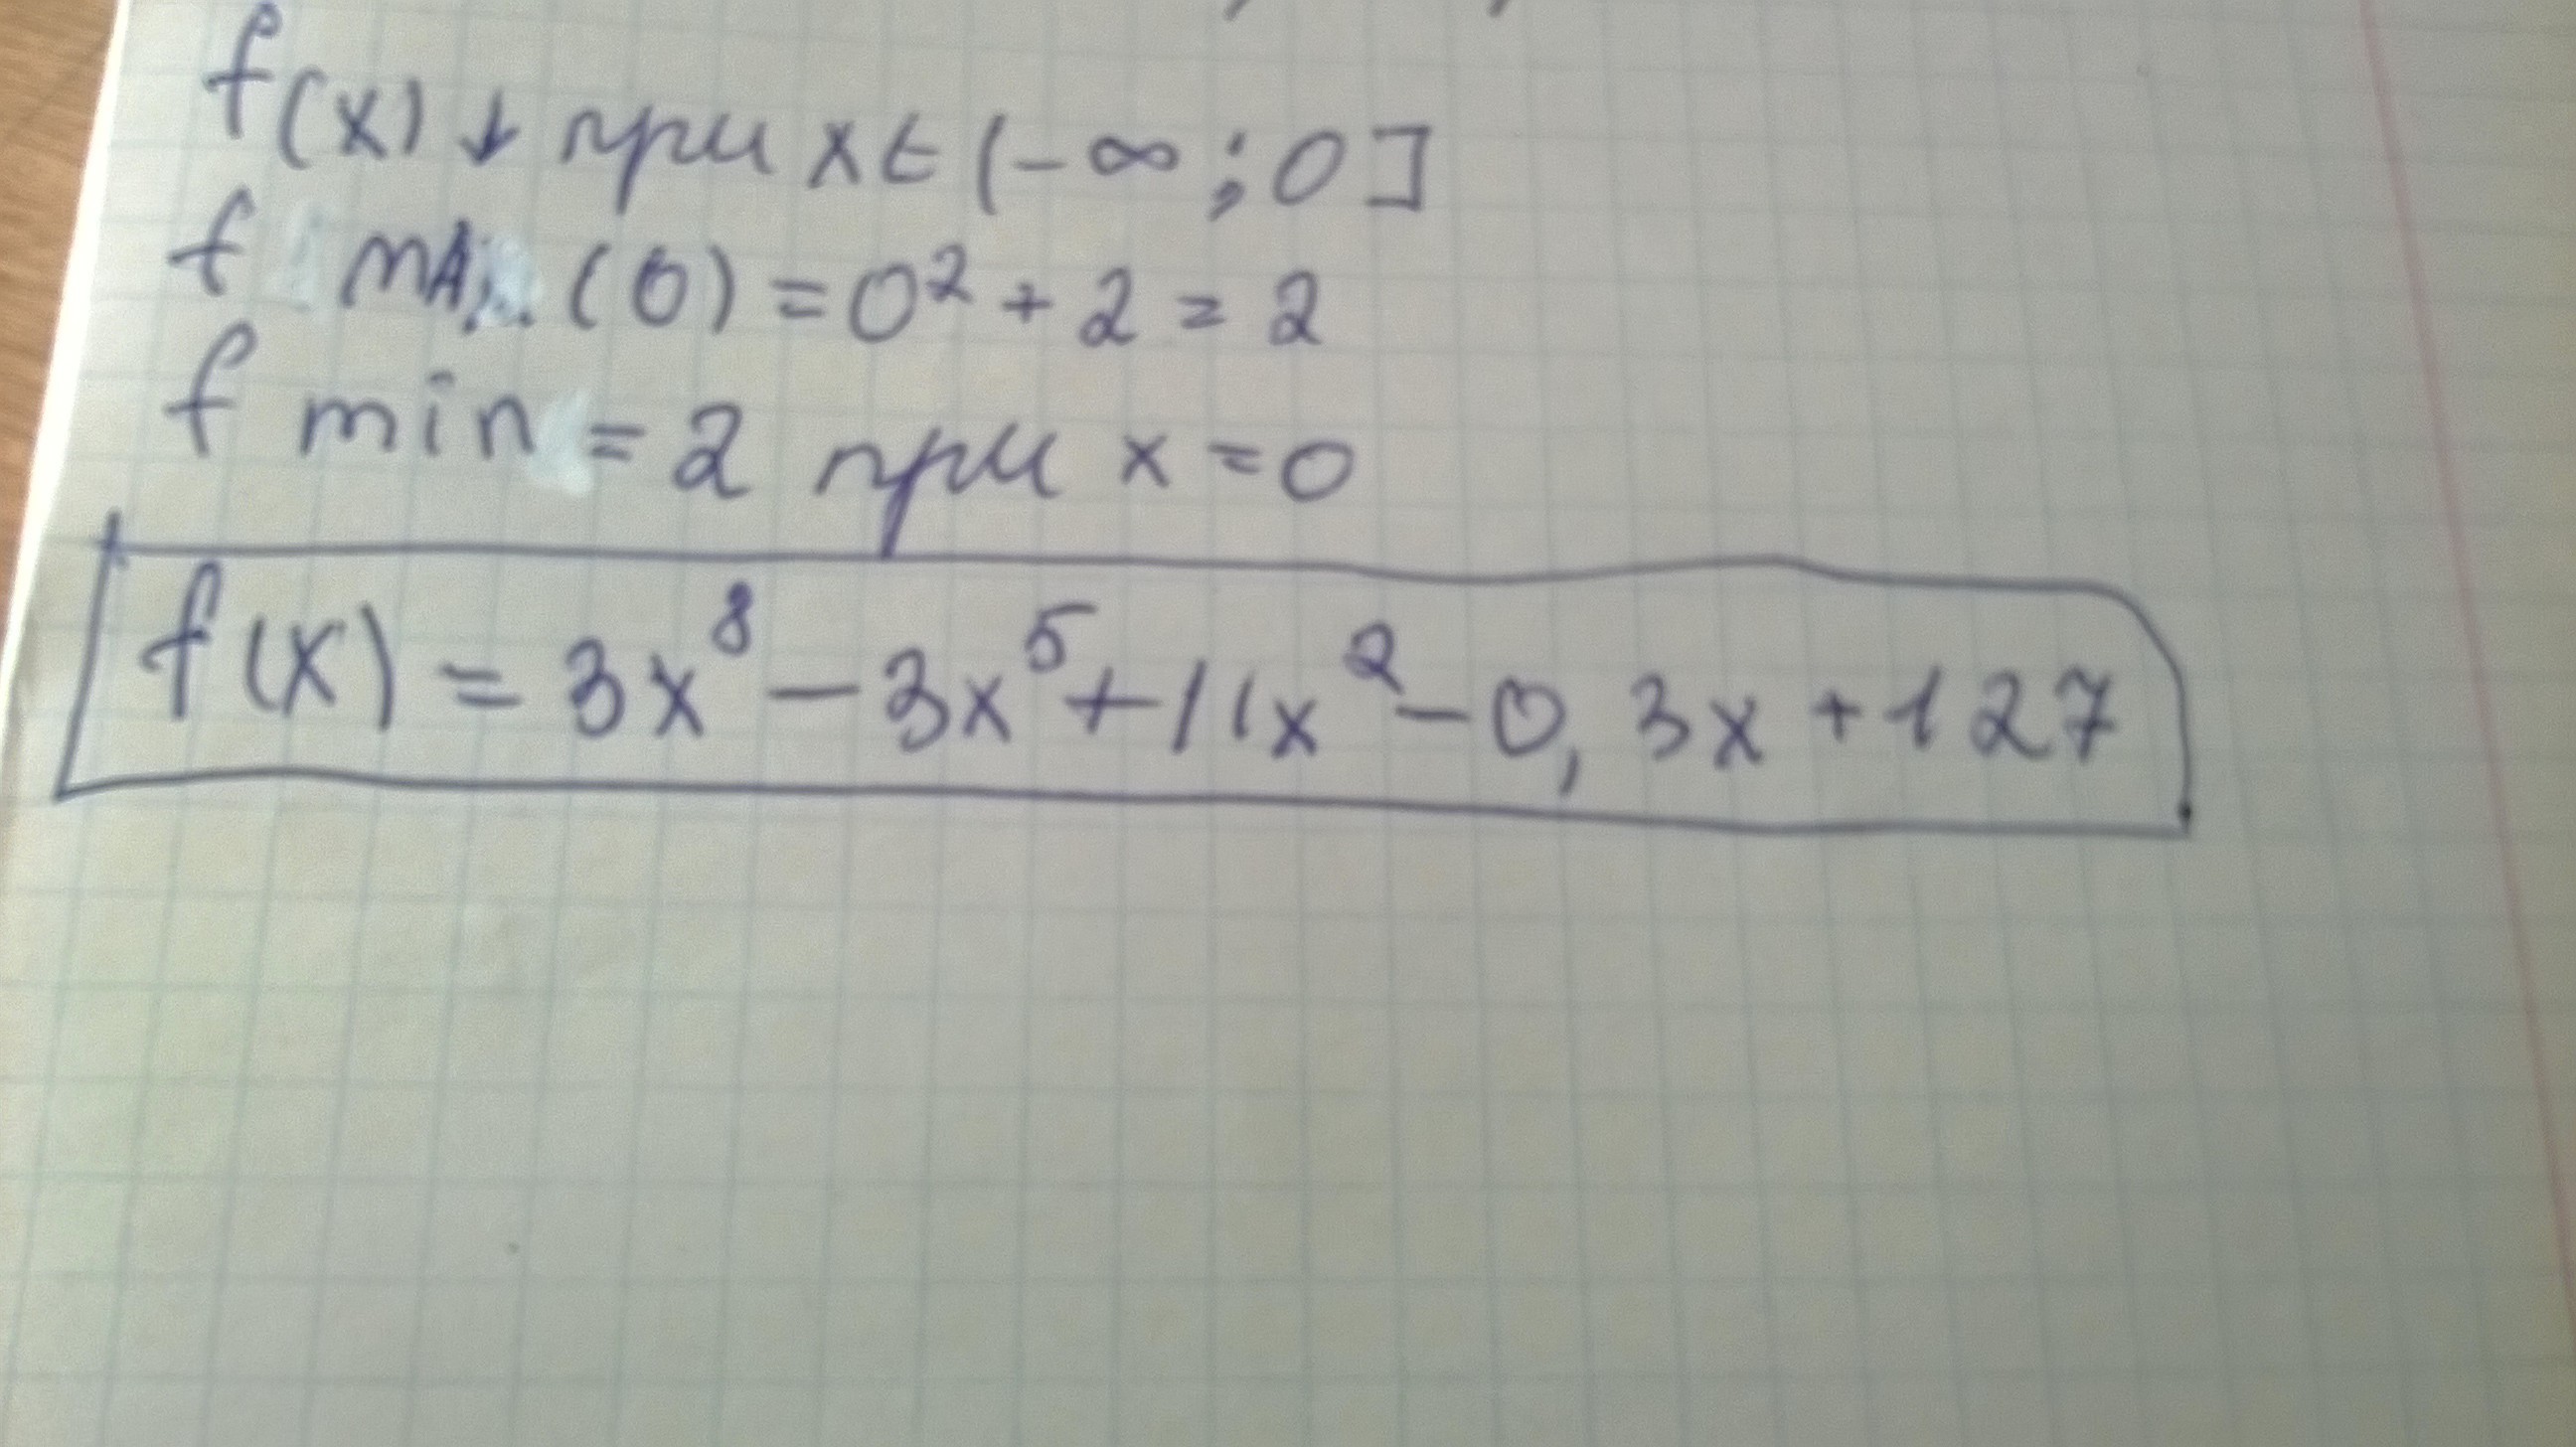 f(x) ↓ при x ∈ (-∞; 0]
f (0) = 0² + 2 = 2
f min = 2 при x = 0
f(x) = 3x⁸ - 3x⁵ + 11x² - 0,3x + 127